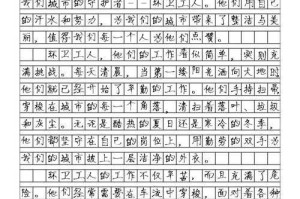 我们城市的守护者——环卫工人。他们用自己
的汗水和努力，为我们的城市带来了整洁与美
丽，值得我们每一个人为他们点赞。
环卫工人，他们的工作看似简单，实则充
满挑战。每天清晨，当第一缕阳光洒向大地时
他们就已经开始了辛勤的工作。他们手持扫帚
穿梭在城市的每一个角落，清扫着落叶、垃圾
和灰尘。无论是酷热的夏日还是寒冷的冬季，
他们都坚守在自己的岗位上，用勤劳的双手为
我们的城市披上一层洁净的外衣。
环卫工人的工作不仅辛苦，而且充满了危
险。他们经常需要在车流中穿梭，面对着各种